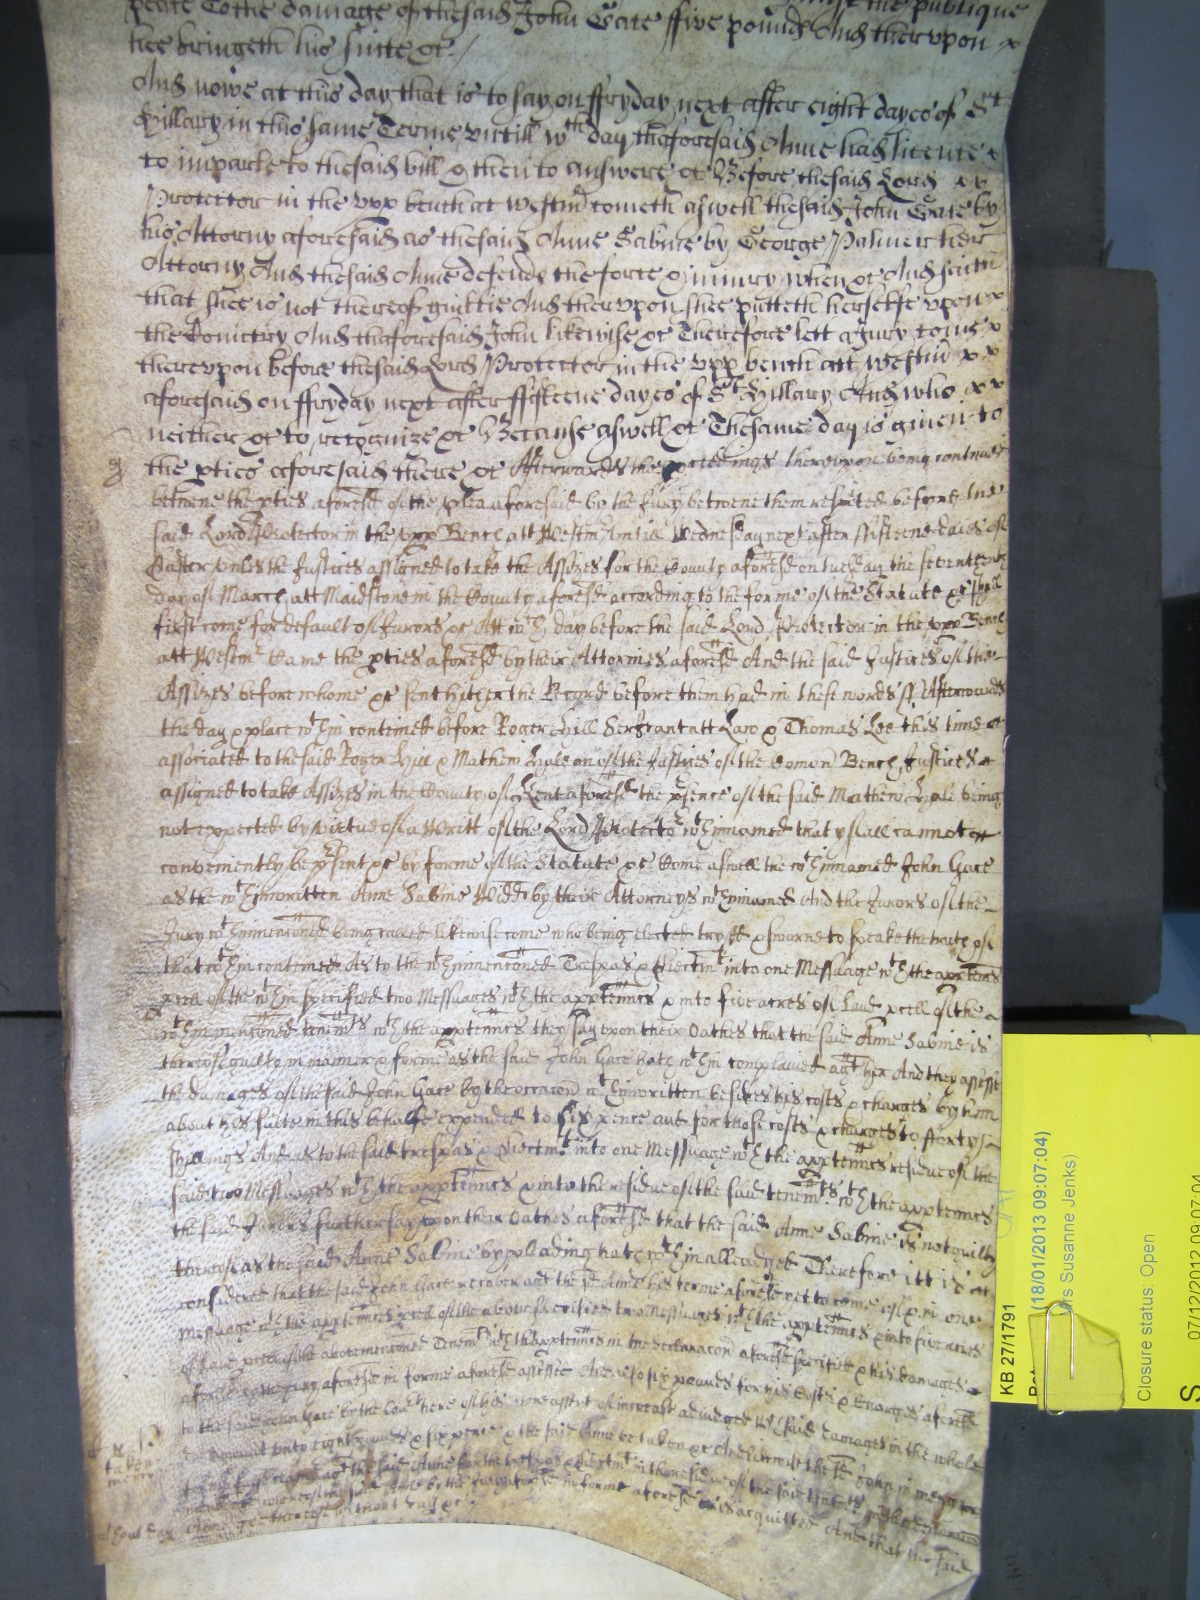 peace To the damage of the said John Gate ffive pounds And therupon
hee bringeth his suite &c
And nowe at this day that is to say on ffryday next after eight dayes of St
Hillary in this same Terme untill wch day thaforesaid Anne had licence
to imparle to the said bill & then to answere &c Before the said Lord
Protector in the upp bench at Westmr cometh aswell the said John Gate by
his Attorny aforesaid as the said Anne Sabine by George Palmer her
Attorny And the said Anne defends the force & iniury when &c And saith
that shee is not thereof guiltie And therupon shee putteth herselfe upon
the Countrey And thaforesaid John likewise &c Therefore lett a Jury come
thereupon before the said Lord Protector in the upp bench att Westmr
aforesaid on ffryday next after ffifteene dayes of St Hillary And who
neither &c to recognize &c Because aswell &c The same day is given to
the pties aforesaid there &c Afterwards the proceedings thereupon being continued
betwene the pties aforesd of the plea aforesaid by the Jury betwene them respited before the
said Lord Protector in the upp Bench att Westmr untill Wednesday next after ffifteene daies of
Easter unles the Justices assigned to take the Assizes for the County aforesd on tuesday the seventeenth
day of March att Maidstone in the County aforesd according to the forme of the Statute &c shall
first come for default of Jurors &c Att wch day before the said Lord Protector in the upp Bench
att Westmr Came the pties aforesd by their Attornies aforesd And the said Justices of the
Assizes before whome &c sent hither the Record before them had in these words ss Afterwards
the day & place wthin conteined before Roger Hill Serjeant att Law & Thomas Lee this time
associated to the said Roger Hill & Mathew Hale one of the Justices of the Comon Bench Justices
assigned to take Assizes in the County of Kent aforesd the psence of the said Mathew Hale being
not expected by virtue of a Writt of the Lord Protector wthinnamed that they all cannot
conveniently be psent &c by forme of the Statute &c Come aswell the wthinnamed John Gate
as the wthinwritten Anne Sabine Widd by their Attorneys wthinnamed And the Jurors of the
Jury wthinmenconed being called likewise come who being elected tryed & sworne to speake the truth of
that wthin conteined As to the wthinmenconed Trespas & Eiectmt into one Messuage wth the apptennces
pcell of the wthin specified two Messuages wth the apptennces & into five acres of Land pcell of the
wthin menconed tenemts wth the apptennces they say upon their Oathes that the said Anne Sabine is
thereof guilty in manner & forme as the said John Gate hath wthin complained agt her And they assesse
the damages of the said John Gate by the occacon wthinwritten besides his costs & charges by him
about his suite in this behalfe expended to six pence and for those costs & charges to fforty
shillings And as to the said trespas & Eiectmt into one Messuage wth the apptennces residue of the
said two Messuages wth the apptennces & into the residue of the said tenemts wth the apptennces
the said Jurors further say upon their Oathes aforesd that the said Anne Sabine is not guilty
thereof as the said Anne Sabine by pleading hath wthin alleadged Therefore itt is
considered that the said John Gate recover agt the sd Anne his terme aforesd yet to come of & in one
Messuage wth the apptennces pcell of the above specified two Messuages wth the apptennces & into five acres
of Land pcell of the abovemenconed Tenemts wth thapptennces in the declaracon aforesd specified & his damages
aforesd by the Jury aforesd in forme aforesd assessed And also six pounds for his Costs & Charges aforesd
to the said John Gate by the Court here of his assent of increase adiudged wch said damages in the whole
do amount unto eight pounds & six pence & the said Anne be taken &c And the sd John in mercy for
his false claime agt the said Anne for the trespas & Eiectmt in the residue of the said tenemts
whereof the said Anne by the Jury aforesd in forme aforesd is acquitted And that the said
Anne go thereof without day &c
KB 27/1791
(18/01/2013 09:07:04)
rs Susanne Jenks)
Closure status: Open
07/12/2012 09:07:04